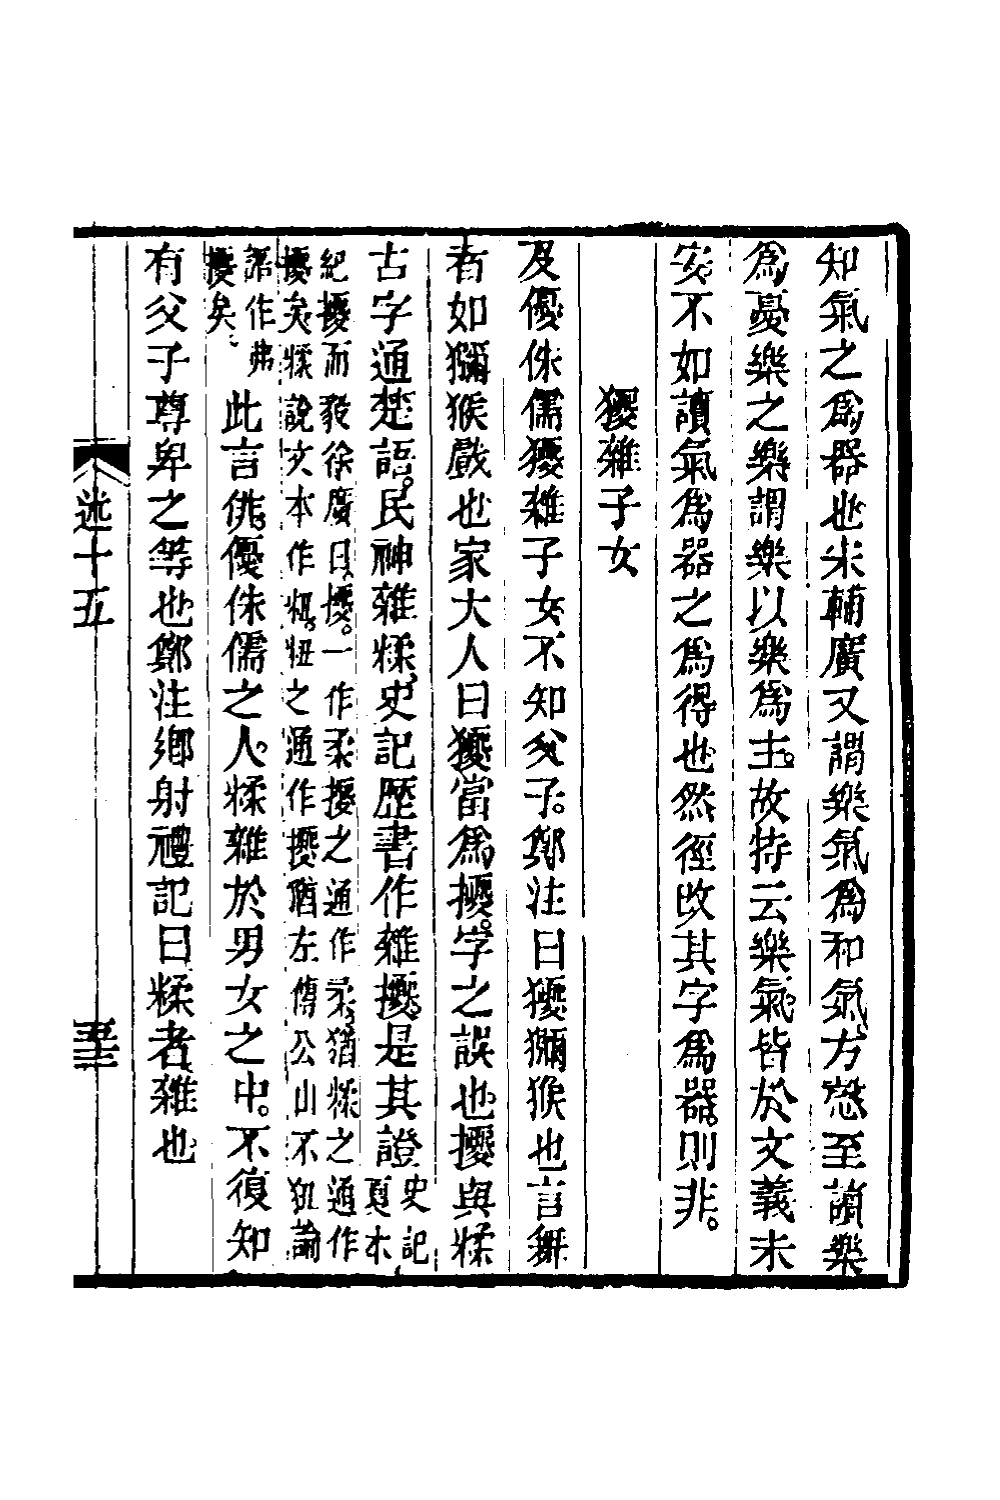 知氣之爲器也宋輔廣又謂樂氣爲和氣方愨至讀樂
爲憂樂之樂謂樂以樂爲主。故特云樂氣。皆於文義未
安。不如讀氣爲器之爲得也然徑改其字爲器。則非。
獶雜子女
及優侏儒獶雜子女不知父子。鄭注曰獶獼猴也言舞
者如獼猴戲也家大人曰獶當爲擾。字之誤也擾與糅
古字通楚語。民神雜糅。史記歷書作雜擾。是其證史記夏本
紀擾而毅徐廣曰擾。一作柔擾之通作柔猶糅之通作
擾矣糅說文本作粈。粈之通作擾猶左傳公山不狃論
語作弗
擾矣。此言俳優侏儒之人。糅雜於男女之中。不復知
有父子尊卑之等也鄭注鄉射禮記曰糅者雜也
述十五